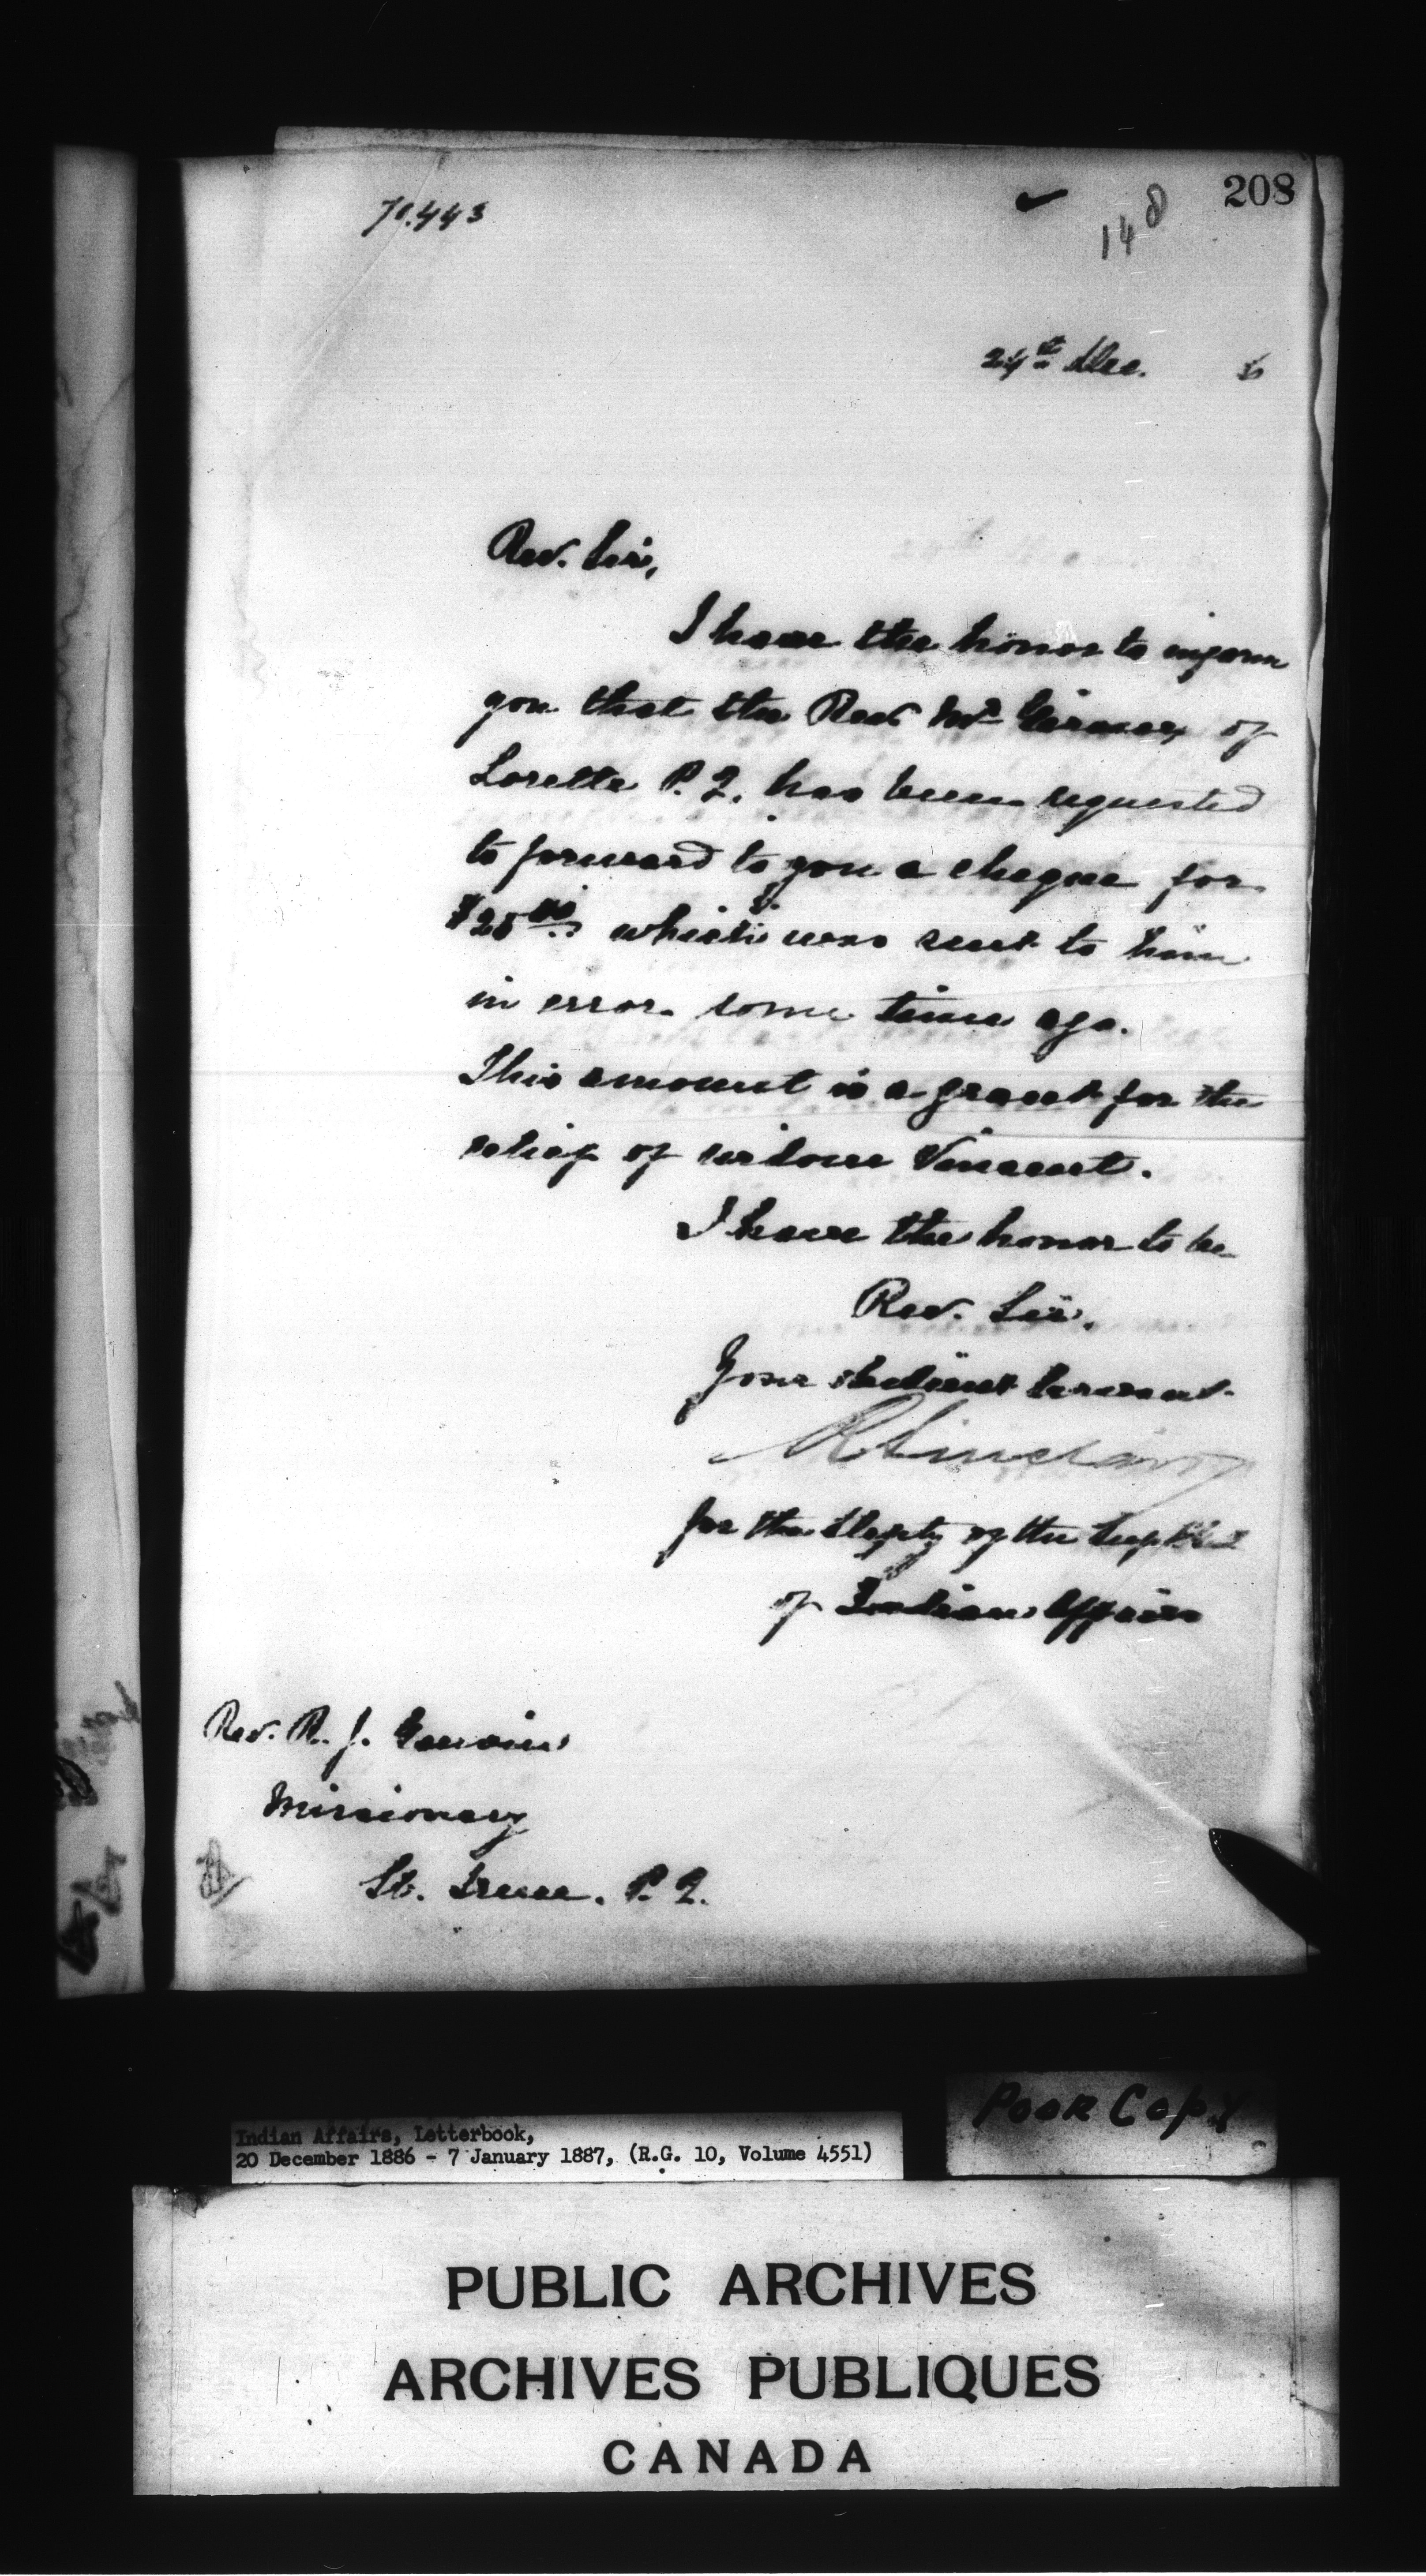 70.443
208
148
24th Dec. 6
Rev. Sir,
I have the honor to inform
you that the Revd Mr of
Lorette P.Q. has been requested
to forward to you a cheque for
$20 which was sent to him
in error some time ago.
This amount is a grant for the
relief of widow Vincent.
I have the honor to be
Rev. Sir,
Your obedient servant
R Sinclair
for the Depty of the Supt Genl
of Indian Affairs
Rev. R. J.
Missionary
St. Irenee. P.Q.
POOR COPY
Indian Affairs, Letterbook,
20 December 1886 - 7 January 1887, (R.G. 10, Volume 4551)
PUBLIC ARCHIVES
ARCHIVES PUBLIQUES
CANADA